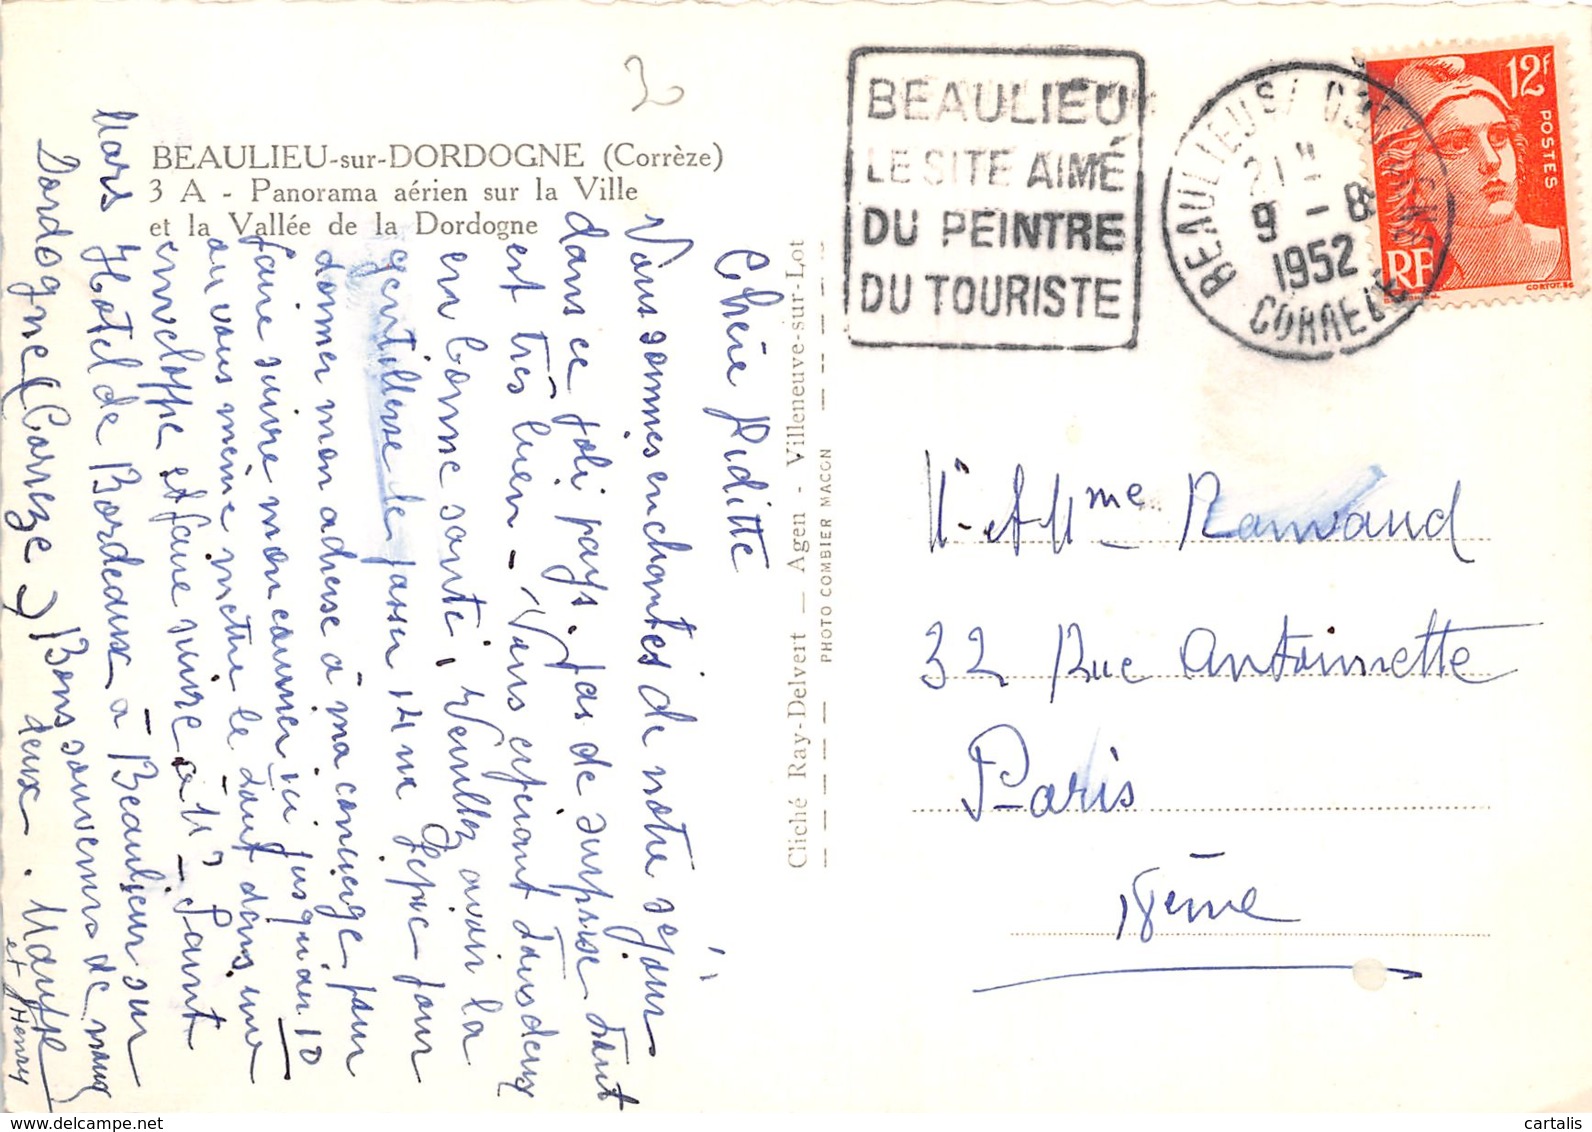 BEAULIEU-sur-DORDOGNE (Corrèze)
3 A - Panorama aérien sur la Ville
et la Vallée de la Dordogne
Chère Piditte
Vous sommes enchantés de notre séjour
dans ce joli pays, pas de surprise tant
est très bien - Vous espérant tous deux
en bonne santé, Veuillez avoir la
gentillesse de passer 14 rue pour
donner mon adresse à ma concierge pour
faire suivre mon courrier ici jusqu'au 10
ou vous même mettre le tout dans une
enveloppe et faire suivre à M Saint
Mars Hotel de Bordeaux à Beaulieur sur
Dordogne (Corrèze) Bons souvenirs de nous
deux.
et Henry
Cliché Ray-Delvert — Agen - Villeneuve-sur-Lot
PHOTO COMBIER MACON
BEAULIEU
LE SITE AIMÉ
DU PEINTRE
DU TOURISTE
BEAULIEU S/ DORDOGNE
21 H
9 - 8
1952
CORREZE
12F
POSTES
RF
CORTOT. SC
Mr et Mme Ramvaud
32 Rue Antoinnette
Paris
18ème
© cartalis